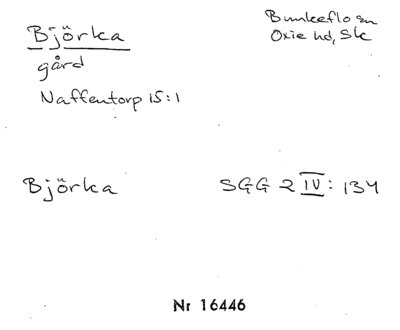 Björka
Bunkeflo sn
Oxie hd, Sk
gård
Naffentorp 15:1
Björka SGG 2 IV: 134
Nr 16446